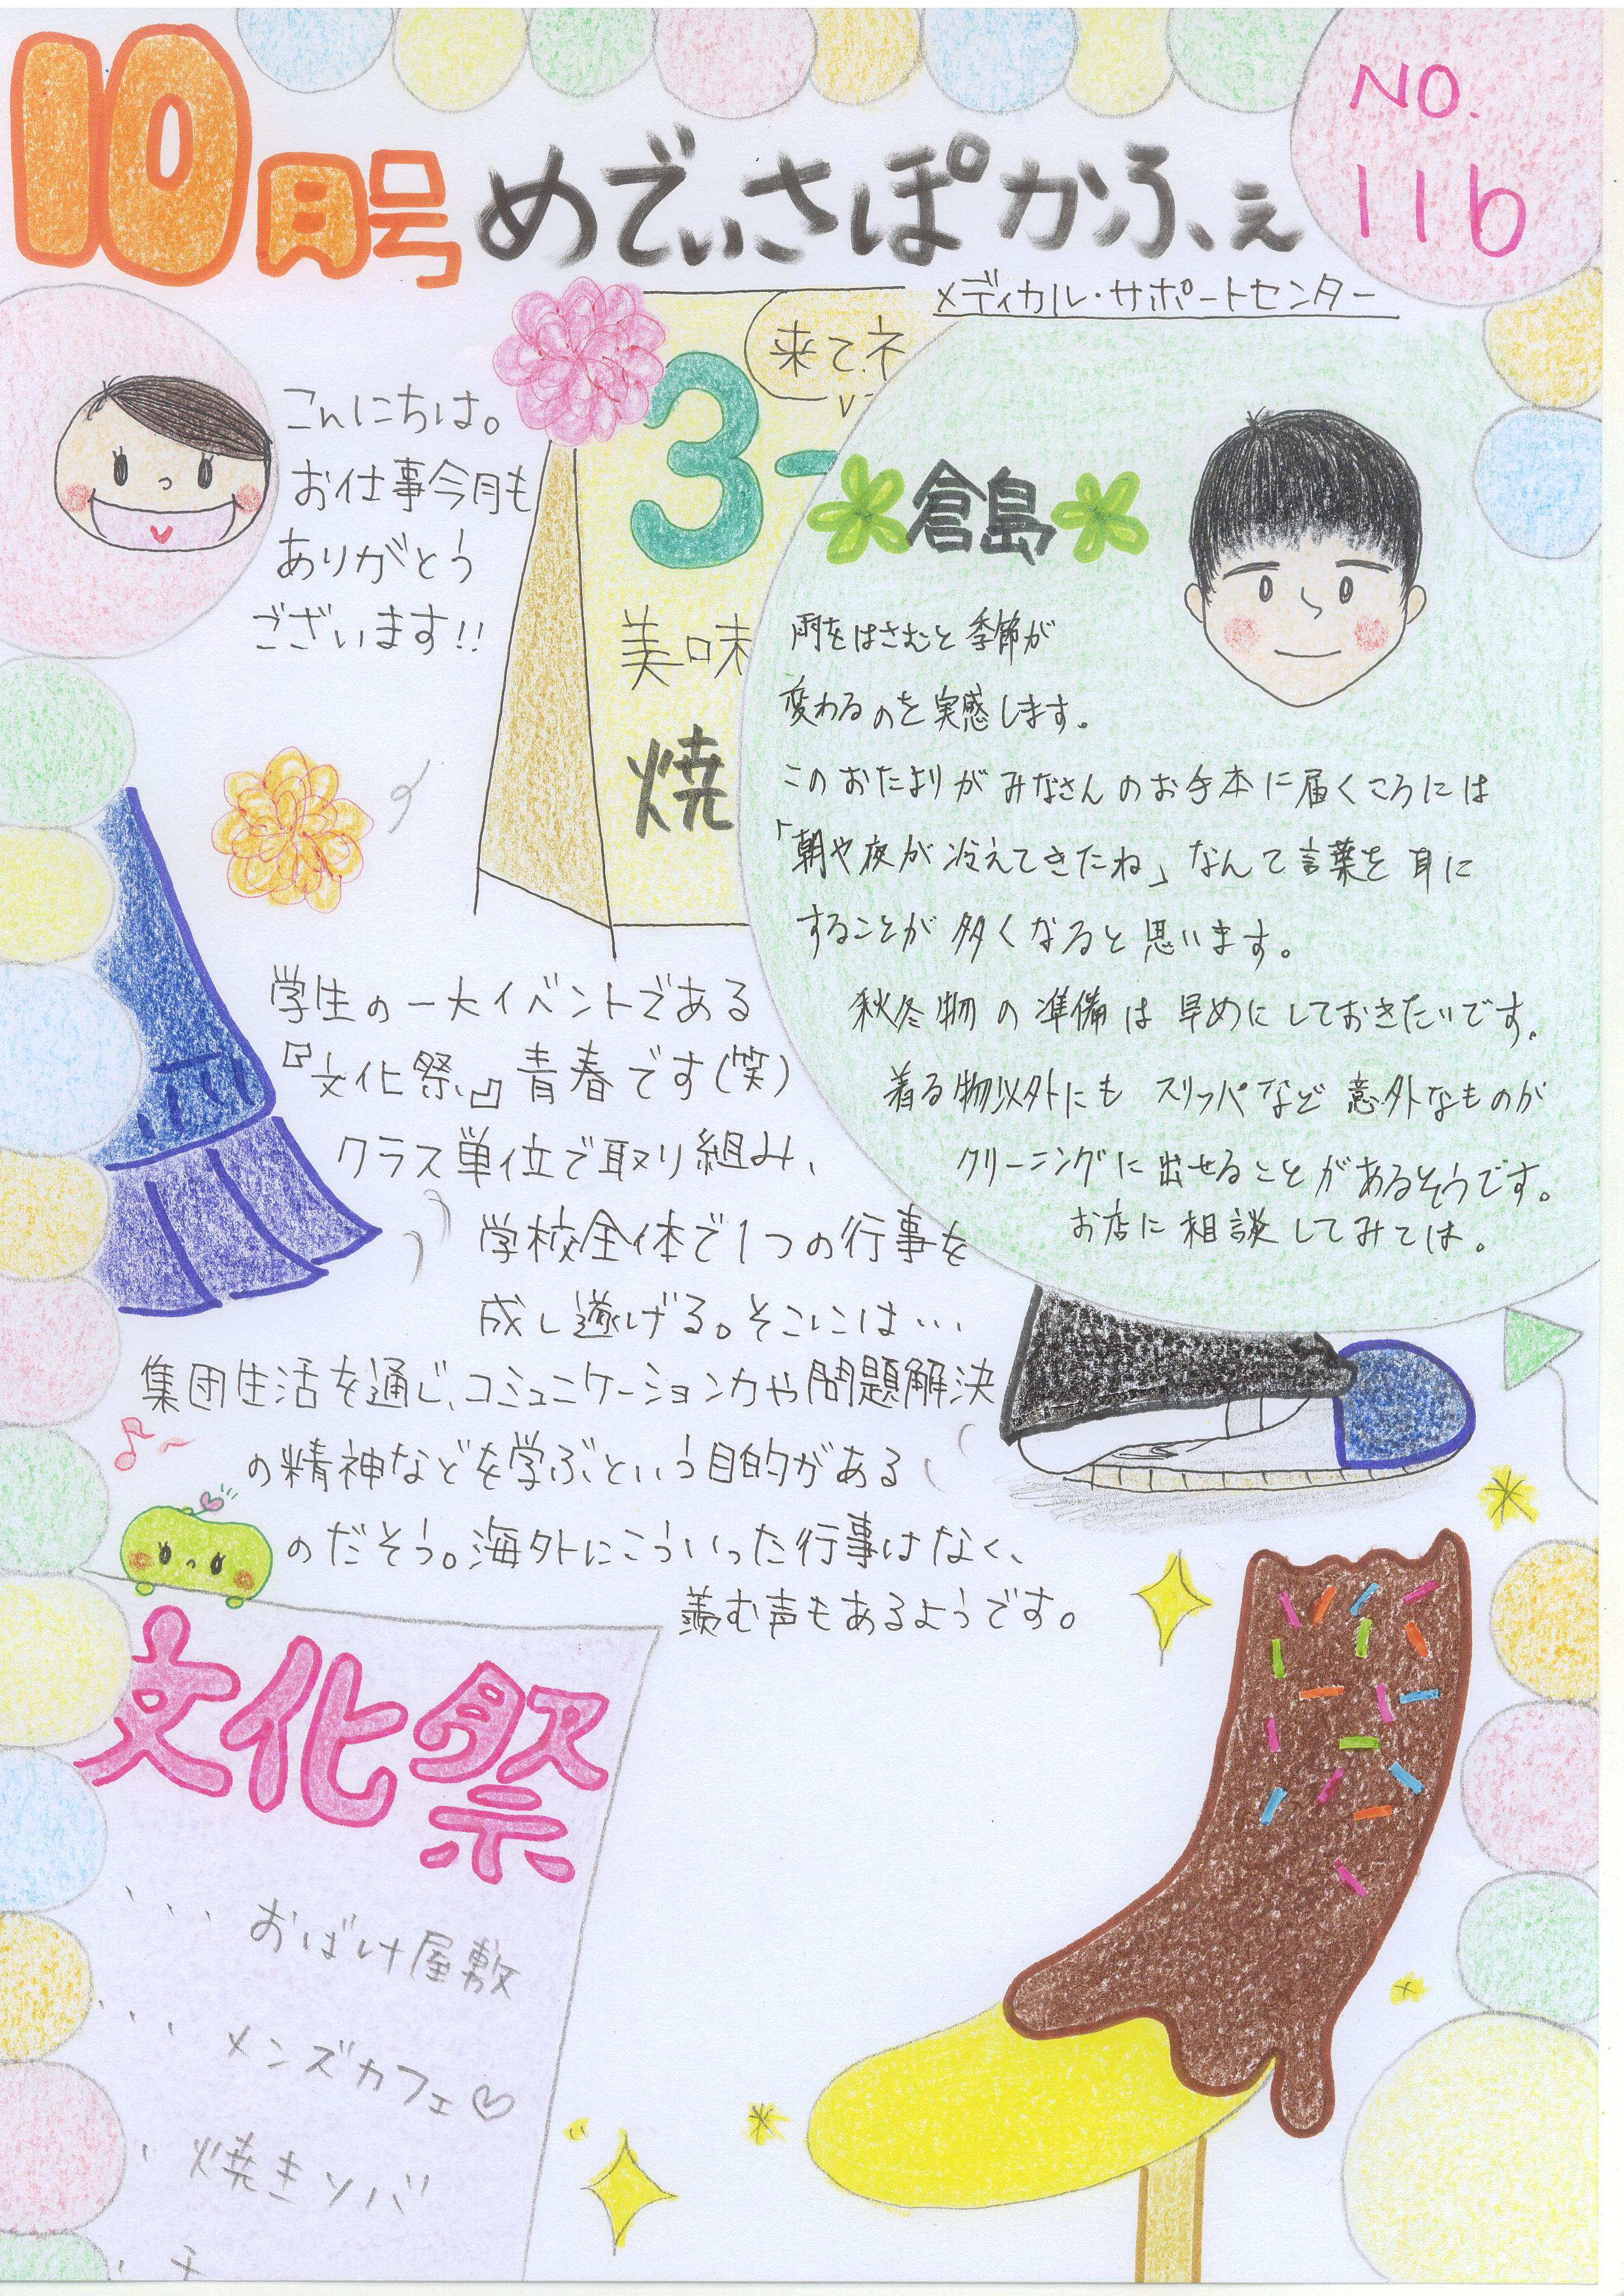 10月号 めでぃさぽかふぇ
NO.
116
メディカル・サポートセンター
こんにちは。
お仕事今月も
ありがとう
ございます!!
来てネ
3-
美味
焼
倉島
雨をはさむと季節が
変わるのを実感します。
このおたよりがみなさんのお手本に届くころには
「朝や夜が冷えてきたね」なんて言葉を耳に
することが多くなると思います。
秋冬物の準備は早めにしておきたいです。
着る物以外にもスリッパなど意外なものが
クリーニングに出せることがあるそうです。
お店に相談してみては。
学生の一大イベントである
『文化祭』青春です(笑)
クラス単位で取り組み、
学校全体で1つの行事を
成し遂げる。そこには…
集団生活を通じ、コミュニケーション力や問題解決
の精神などを学ぶという目的がある
のだそう。海外にこういった行事はなく、
羨む声もあるようです。
文化祭
おばけ屋敷
メンズカフェ♡
焼きソバ